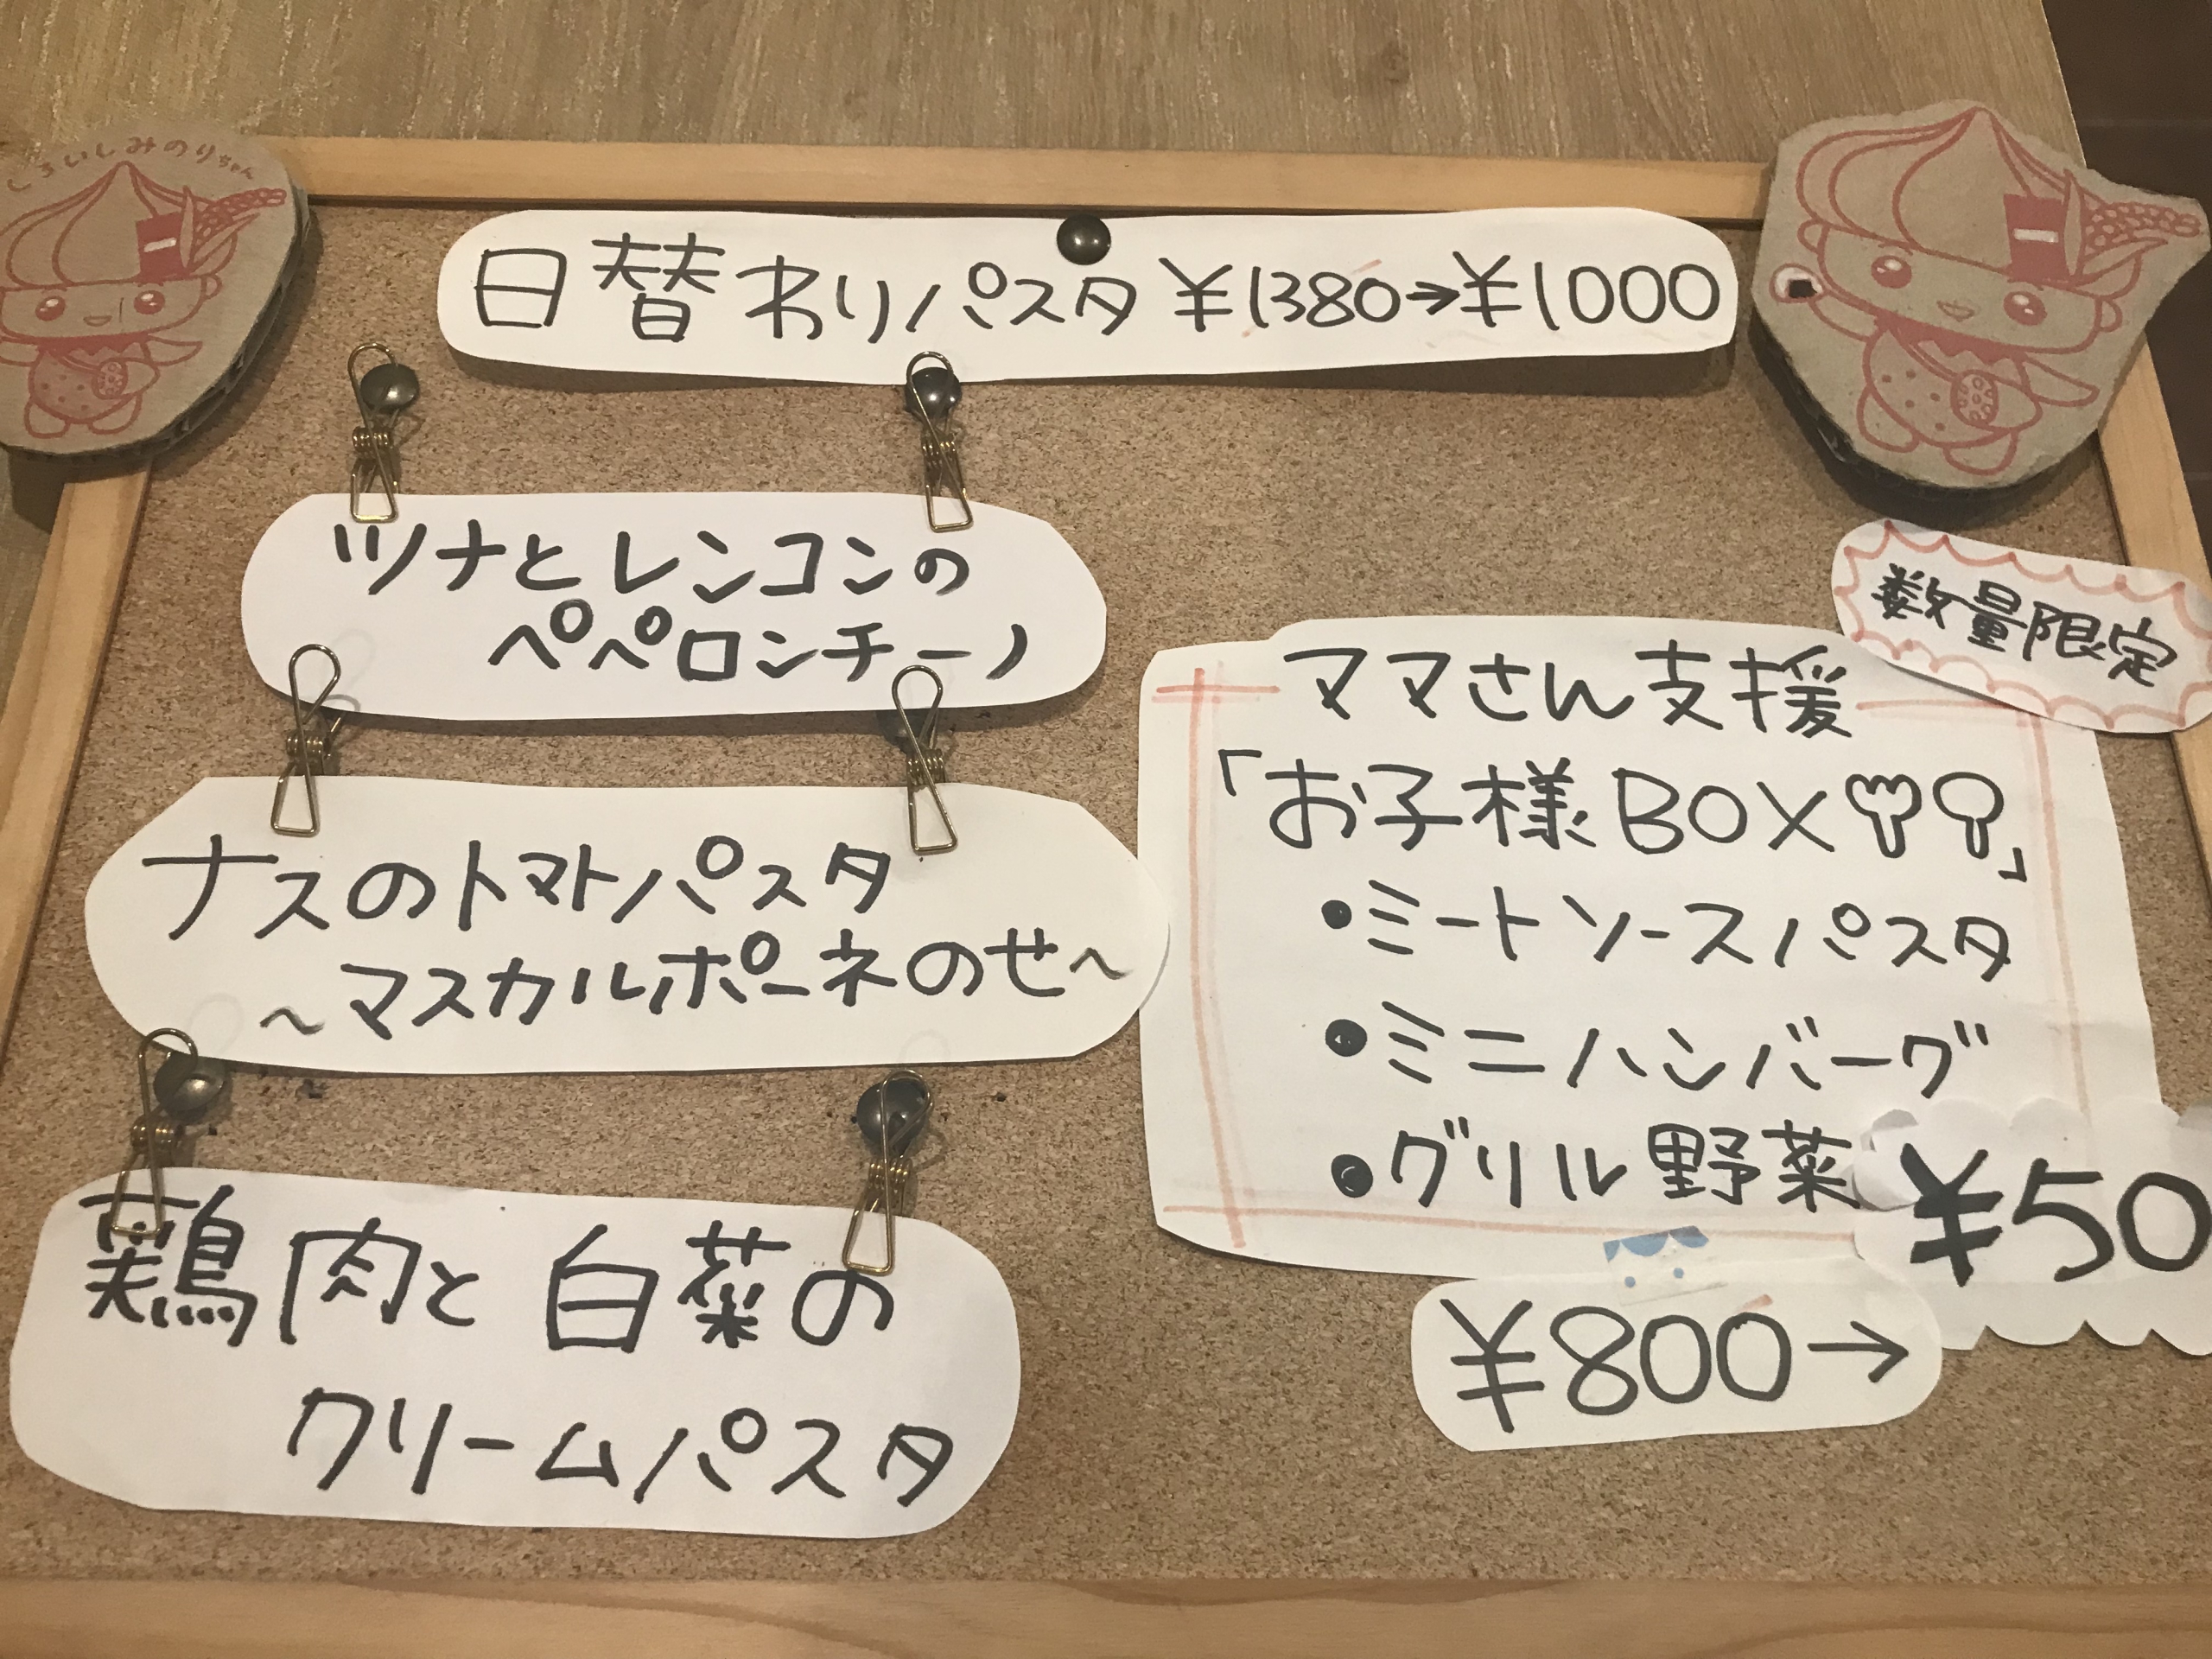 しろいしみのりちゃん
日替わりパスタ ¥1380→¥1000
ツナとレンコンの
ペペロンチーノ
ナスのトマトパスタ
～マスカルポーネのせ～
鶏肉と白菜の
クリームパスタ
数量限定
ママさん支援
「お子様BOX」
•ミートソースパスタ
•ミニハンバーグ
•グリル野菜
¥800→
¥50